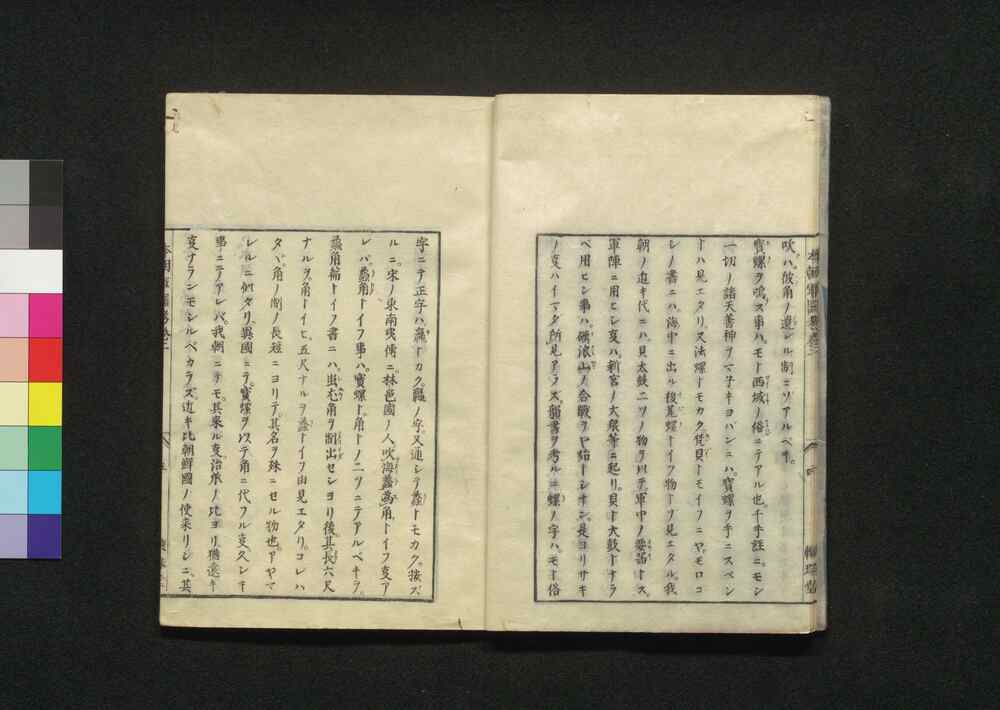 吹ハ彼角ノ遺レル制ニソアルベキ。
寳螺ヲ鳴ス事ハモト西域ノ俗ニテアル也千手誣ニモシ
一切ノ諸天善神ヲマ子キヨバンニハ寳螺ヲ手ニスベシ
トハ見エタリ又法螺トモカク梵貝トモイフニヤモロコ
シノ書ニハ海中ニ出ル後尾螺トイフ物ト見エタル我
朝ノ近キ代ニハ貝太鼓二ツノ物ヲ以テ軍中ノ要器トス
軍陣ニ用ヒシ叓ハ新宮ノ大衆等ニ起リ貝ト大鼓トナラ
ベ用ヒシ事ハ礪浪山ノ合戰ヲヤ始トシナン是ヨリサキ
ノ叓ハイマダ所見アラズ韻書ヲ考ルニ螺ノ字ハモト俗
字ニテ正字ハ蠃トカク蠡ノ字又通シテ蠡トモカク按ズ
ルニ宋ノ東南夷傳ニ林邑國ノ人吹海蠡為角トイフ叓ア
レバ蠡角トイフ事ハ寳螺ト角トノ二ツニテアルベキヲ
蠡角篇トイフ書ニハ蚩尤角ヲ制出セシヨリ後其長六尺
ナルヲ角トイヒ五尺ナルヲ蠡トイフ由見エタリコレハ
タヾ角ノ制ノ長短ニヨリテ其名ヲ殊ニセル物也アヤマ
レルニ似タリ異國ニテ寳螺ヲ以テ角ニ代フル叓久シキ
事ニテアレバ我朝ニテモ其來ル叓治承ノ比ヨリ猶遠キ
叓ナランモシルベカラズ近キ比朝鮮國ノ使来リシニ其